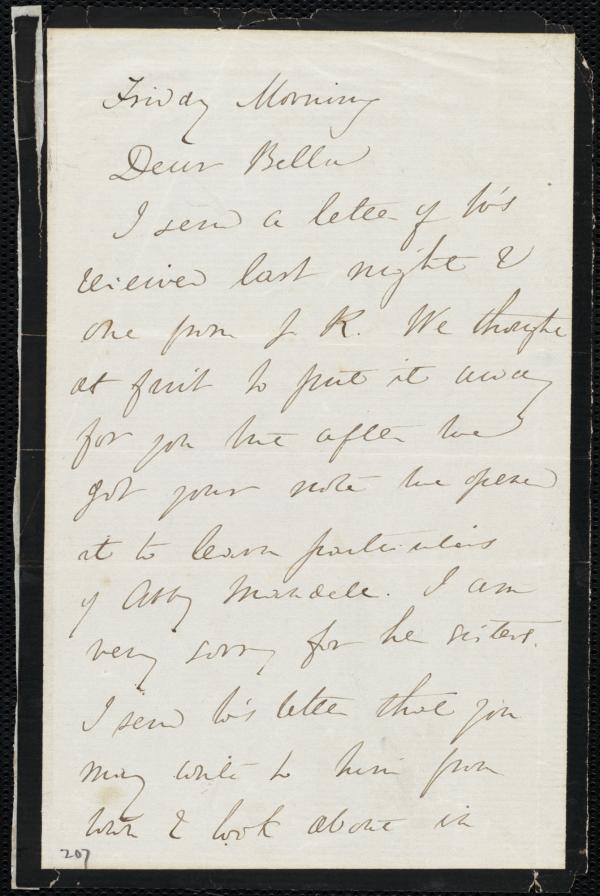 Friday Morning
Dear Bella
I send a letter of Wo's
received last night &
one from J R. We thought
at first to put it away
for you but after we
got your note we opened
it to learn particulars
of Abby Mandell. I am
very sorry for he sisters.
I send Wo's letter that you
may write to him from
town & look about in
207